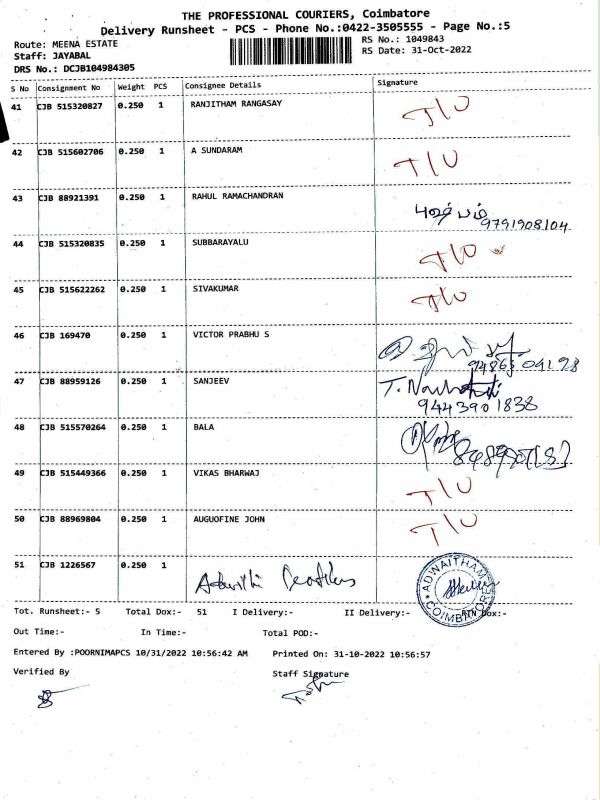 THE PROFESSIONAL COURIERS, Coimbatore
Delivery Runsheet - PCS - Phone No.:0422-3505555 - Page No.:5
Route: MEENA ESTATE
RS No.: 1049843
Staff: JAYABAL
RS Date: 31-Oct-2022
DRS No.: DCJB104984305
S No Consignment No Weight PCS Consignee Details Signature
41 CJB 515320827 0.250 1 RANJITHAM RANGASAY T/O
42 CJB 515602706 0.250 1 A SUNDARAM T/O
43 CJB 88921391 0.250 1 RAHUL RAMACHANDRAN
9791908104
44 CJB 515320835 0.250 1 SUBBARAYALU T/O
45 CJB 515622262 0.250 1 SIVAKUMAR T/O
46 CJB 169470 0.250 1 VICTOR PRABHU S
94865 04128
47 CJB 88959126 0.250 1 SANJEEV T.
9443901838
48 CJB 515570264 0.250 1 BALA
49 CJB 515449366 0.250 1 VIKAS BHARWAJ T/O
50 CJB 88969804 0.250 1 AUGUOFINE JOHN T/O
51 CJB 1226567 0.250 1
ADWAITHAM
COIMBATORE
Tot. Runsheet:- 5 Total Dox:- 51 I Delivery:- II Delivery:- RTN Dox:-
Out Time:- In Time:- Total POD:-
Entered By :POORNIMAPCS 10/31/2022 10:56:42 AM Printed On: 31-10-2022 10:56:57
Verified By Staff Signature